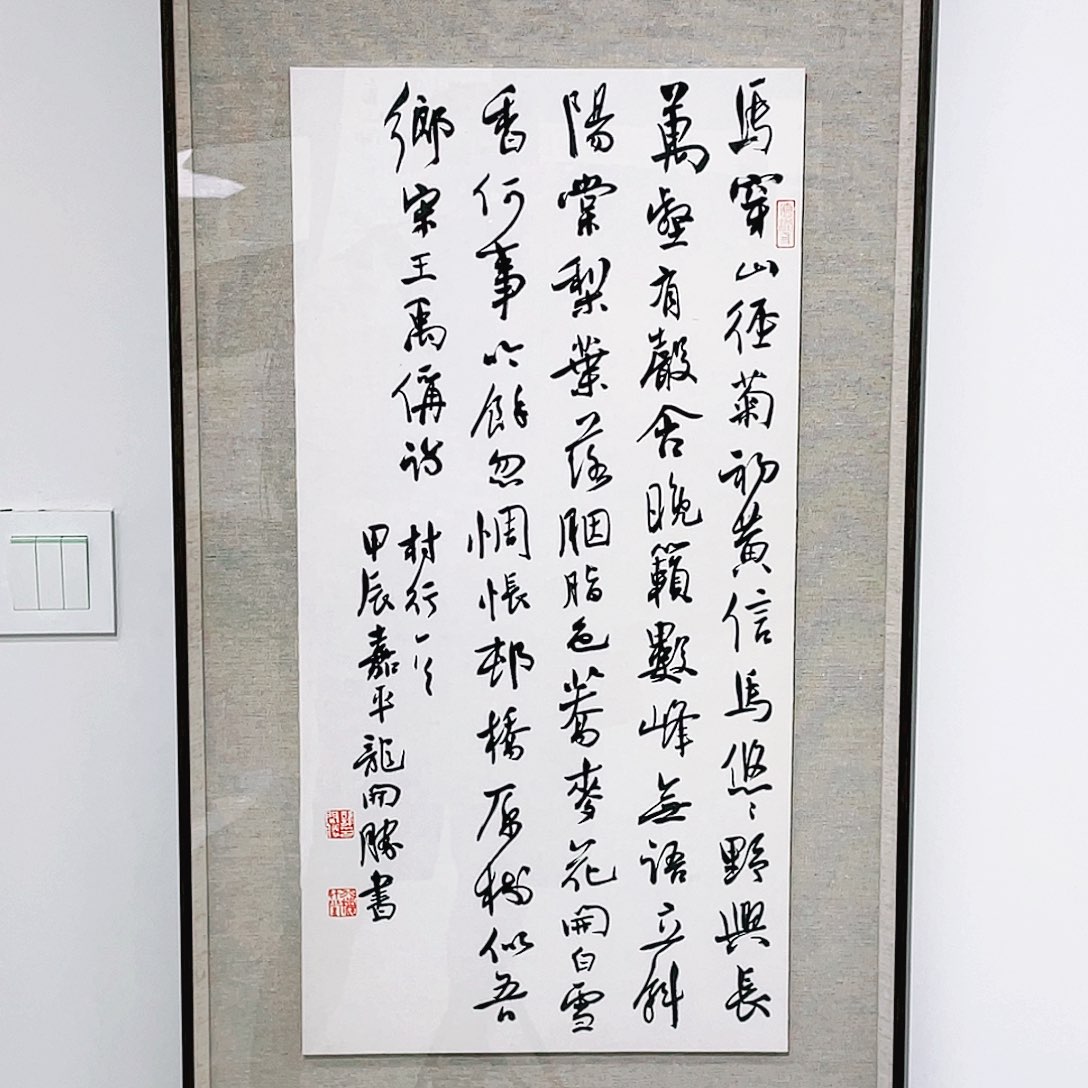 馬穿山徑菊初黃信馬悠〻野興長
萬壑有聲含晚籟數峰無語立斜
陽棠梨葉落胭脂色蕎麥花開白雪
香何事吟餘忽惆悵邨橋原樹似吾
鄉宋王禹偁詩
村行一首
甲辰嘉平龍開勝書